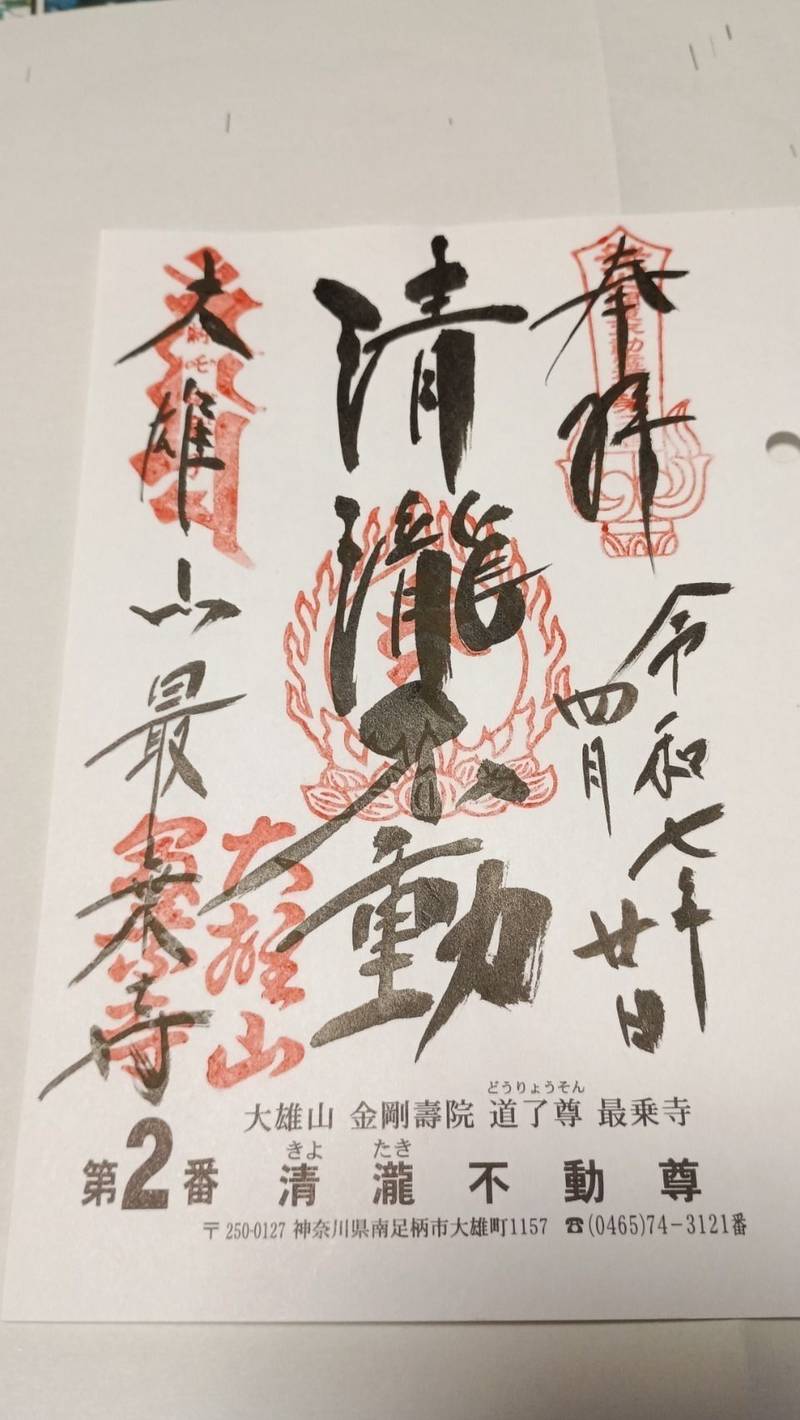 奉拝
令和七年
四月廿日
清瀧不動
大雄山最乗寺
大雄山
大雄山 金剛壽院 道了尊 最乗寺
どうりょうそん
第2番 清瀧不動尊
きよ たき
〒250-0127 神奈川県南足柄市大雄町1157 ☎(0465)74-3121番